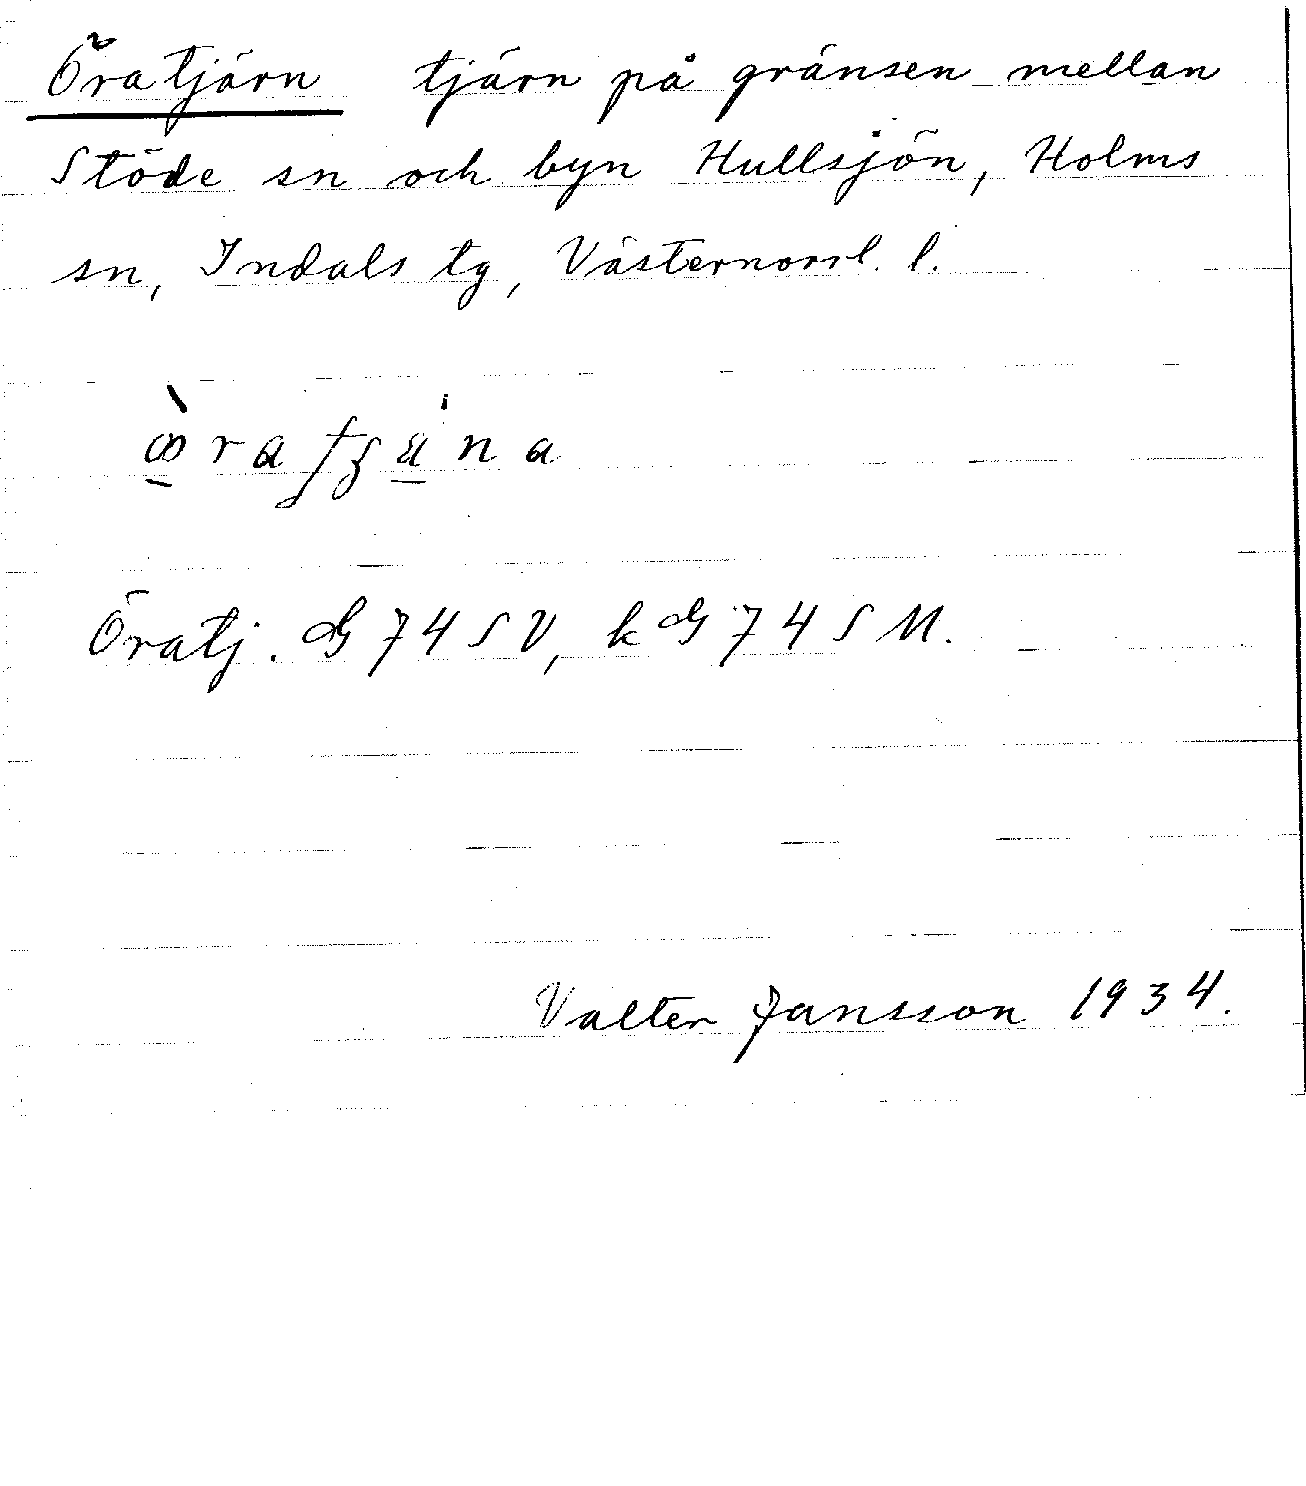 Öratjärn tjärn på gränsen mellan
Stöde sn och byn Hullsjön, Holms
sn, Indals tg, Västernorrl. l.
Öratj. G 74 SV, k G 74 S M.
Valter Jansson 1934.